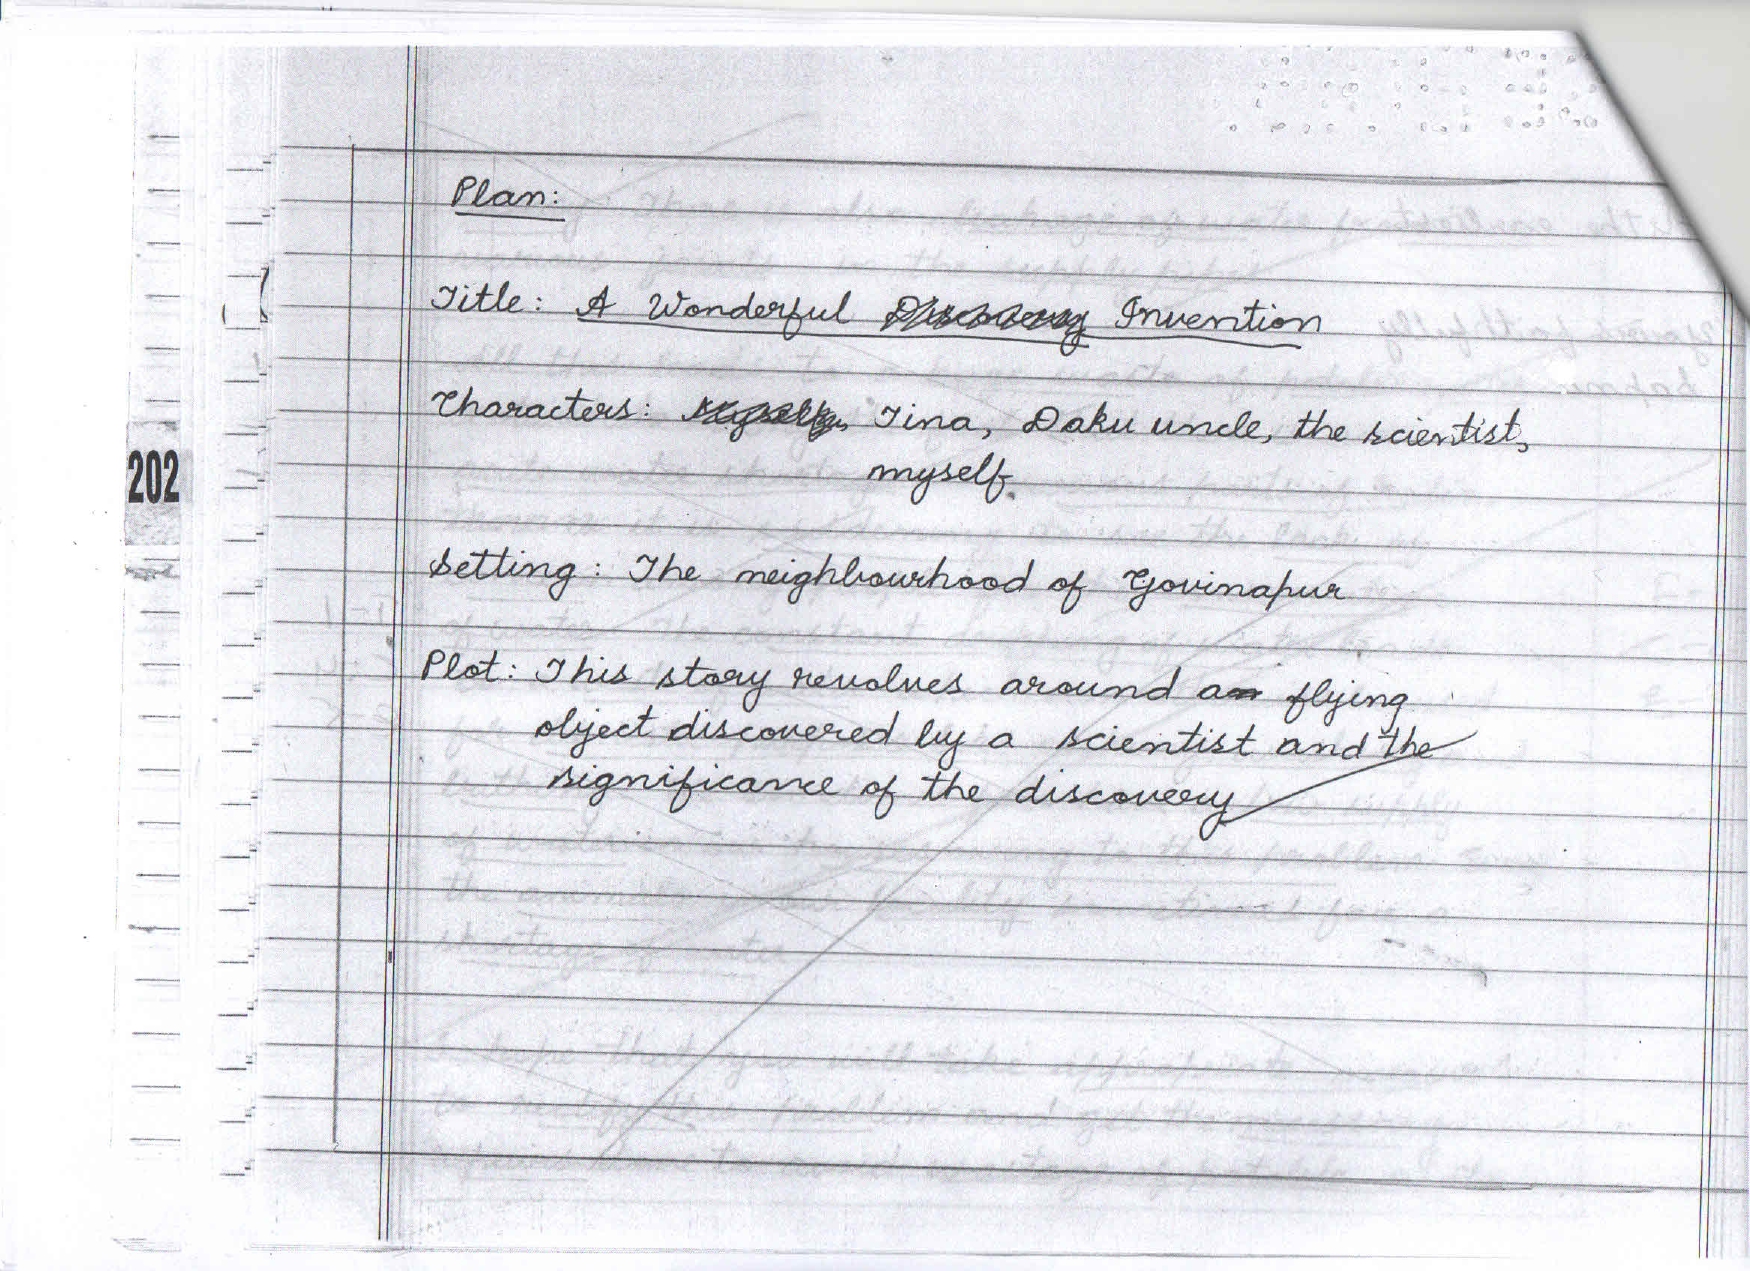 Plan:
Title: A Wonderful Invention
Characters: Tina, Daku uncle, the scientist,
myself.
202
Setting: The neighbourhood of Govinapur
Plot: This story revolves around a flying
object discovered by a scientist and the
significance of the discovery